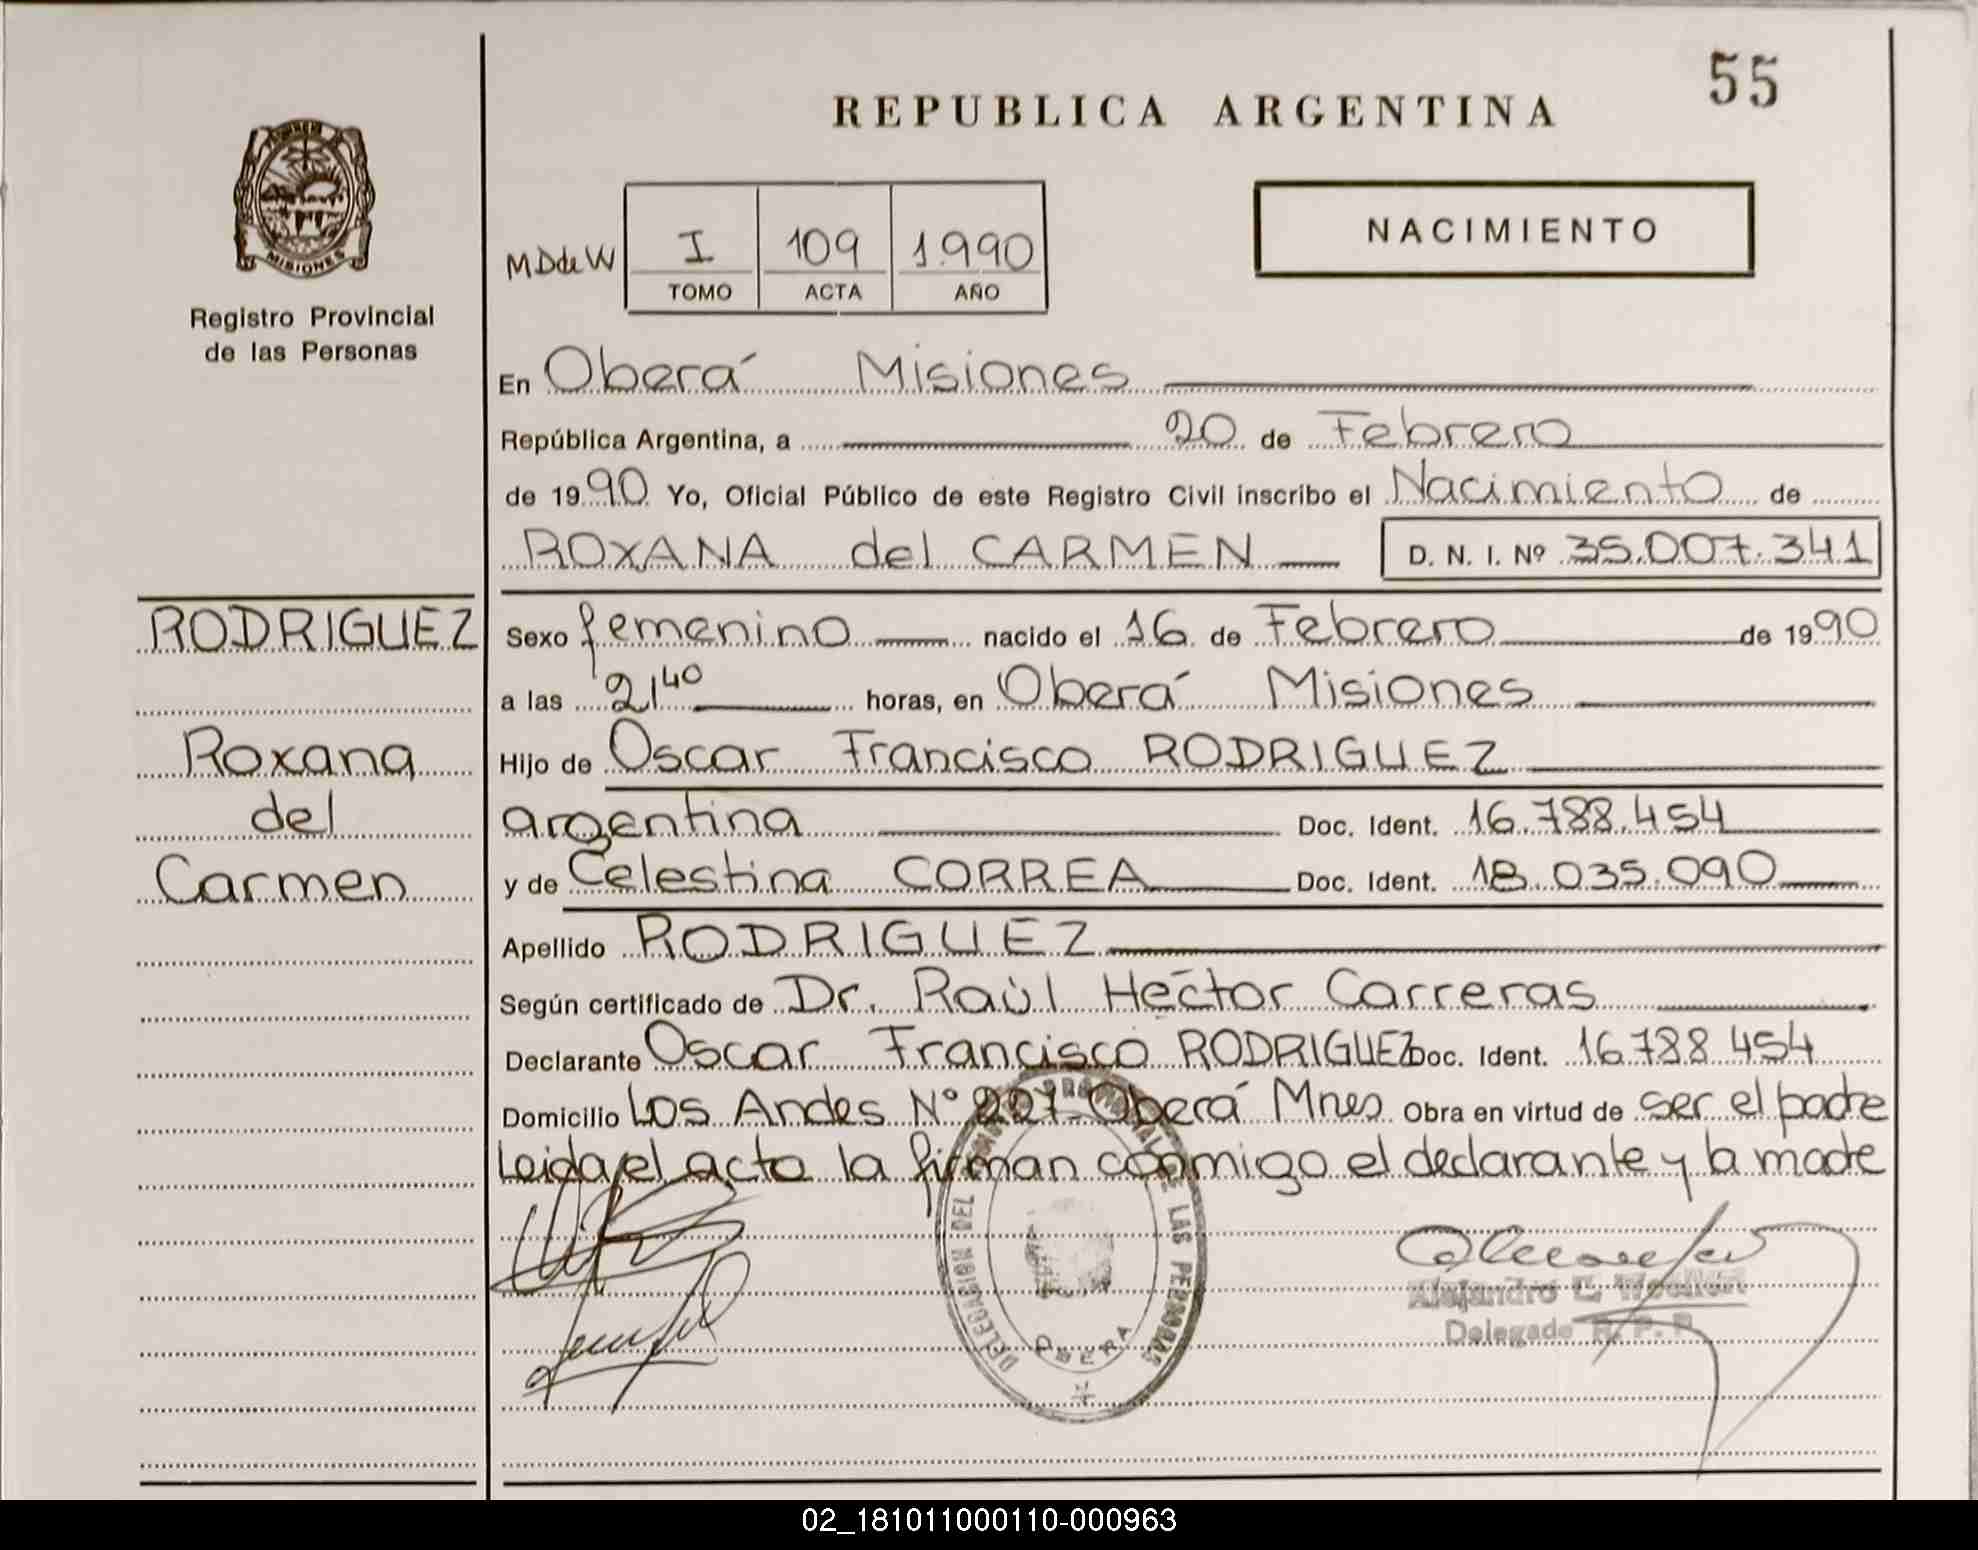 55
REPUBLICA ARGENTINA
MISIONES
Registro Provincial
de las Personas
NACIMIENTO
MDdeW I 109 1.990
TOMO ACTA AÑO
En Oberá Misiones
República Argentina, a 20 de Febrero
de 1990 Yo, Oficial Público de este Registro Civil inscribo el Nacimiento de
ROXANA del CARMEN D. N. I. Nº 35.007.341
RODRIGUEZ
Roxana
del
Carmen
Sexo femenino nacido el 16 de Febrero de 1990
a las 21 40 horas, en Oberá Misiones
Hijo de Oscar Francisco RODRIGUEZ
argentina Doc. Ident. 16.788.454
y de Celestina CORREA Doc. Ident. 18.035.090
Apellido RODRIGUEZ
Según certificado de Dr. Raùl Hector Carreras
Declarante Oscar Francisco RODRIGUEZ Doc. Ident. 16788454
Domicilio Los Andes Nº 227-Oberá Mnes Obra en virtud de ser el padre
Leida el acta la firman conmigo el declarante y la madre
DELEGACION DEL LAS PERSONAS
OBERA
Alejandro
Delegado R. P. P.
02_181011000110-000963